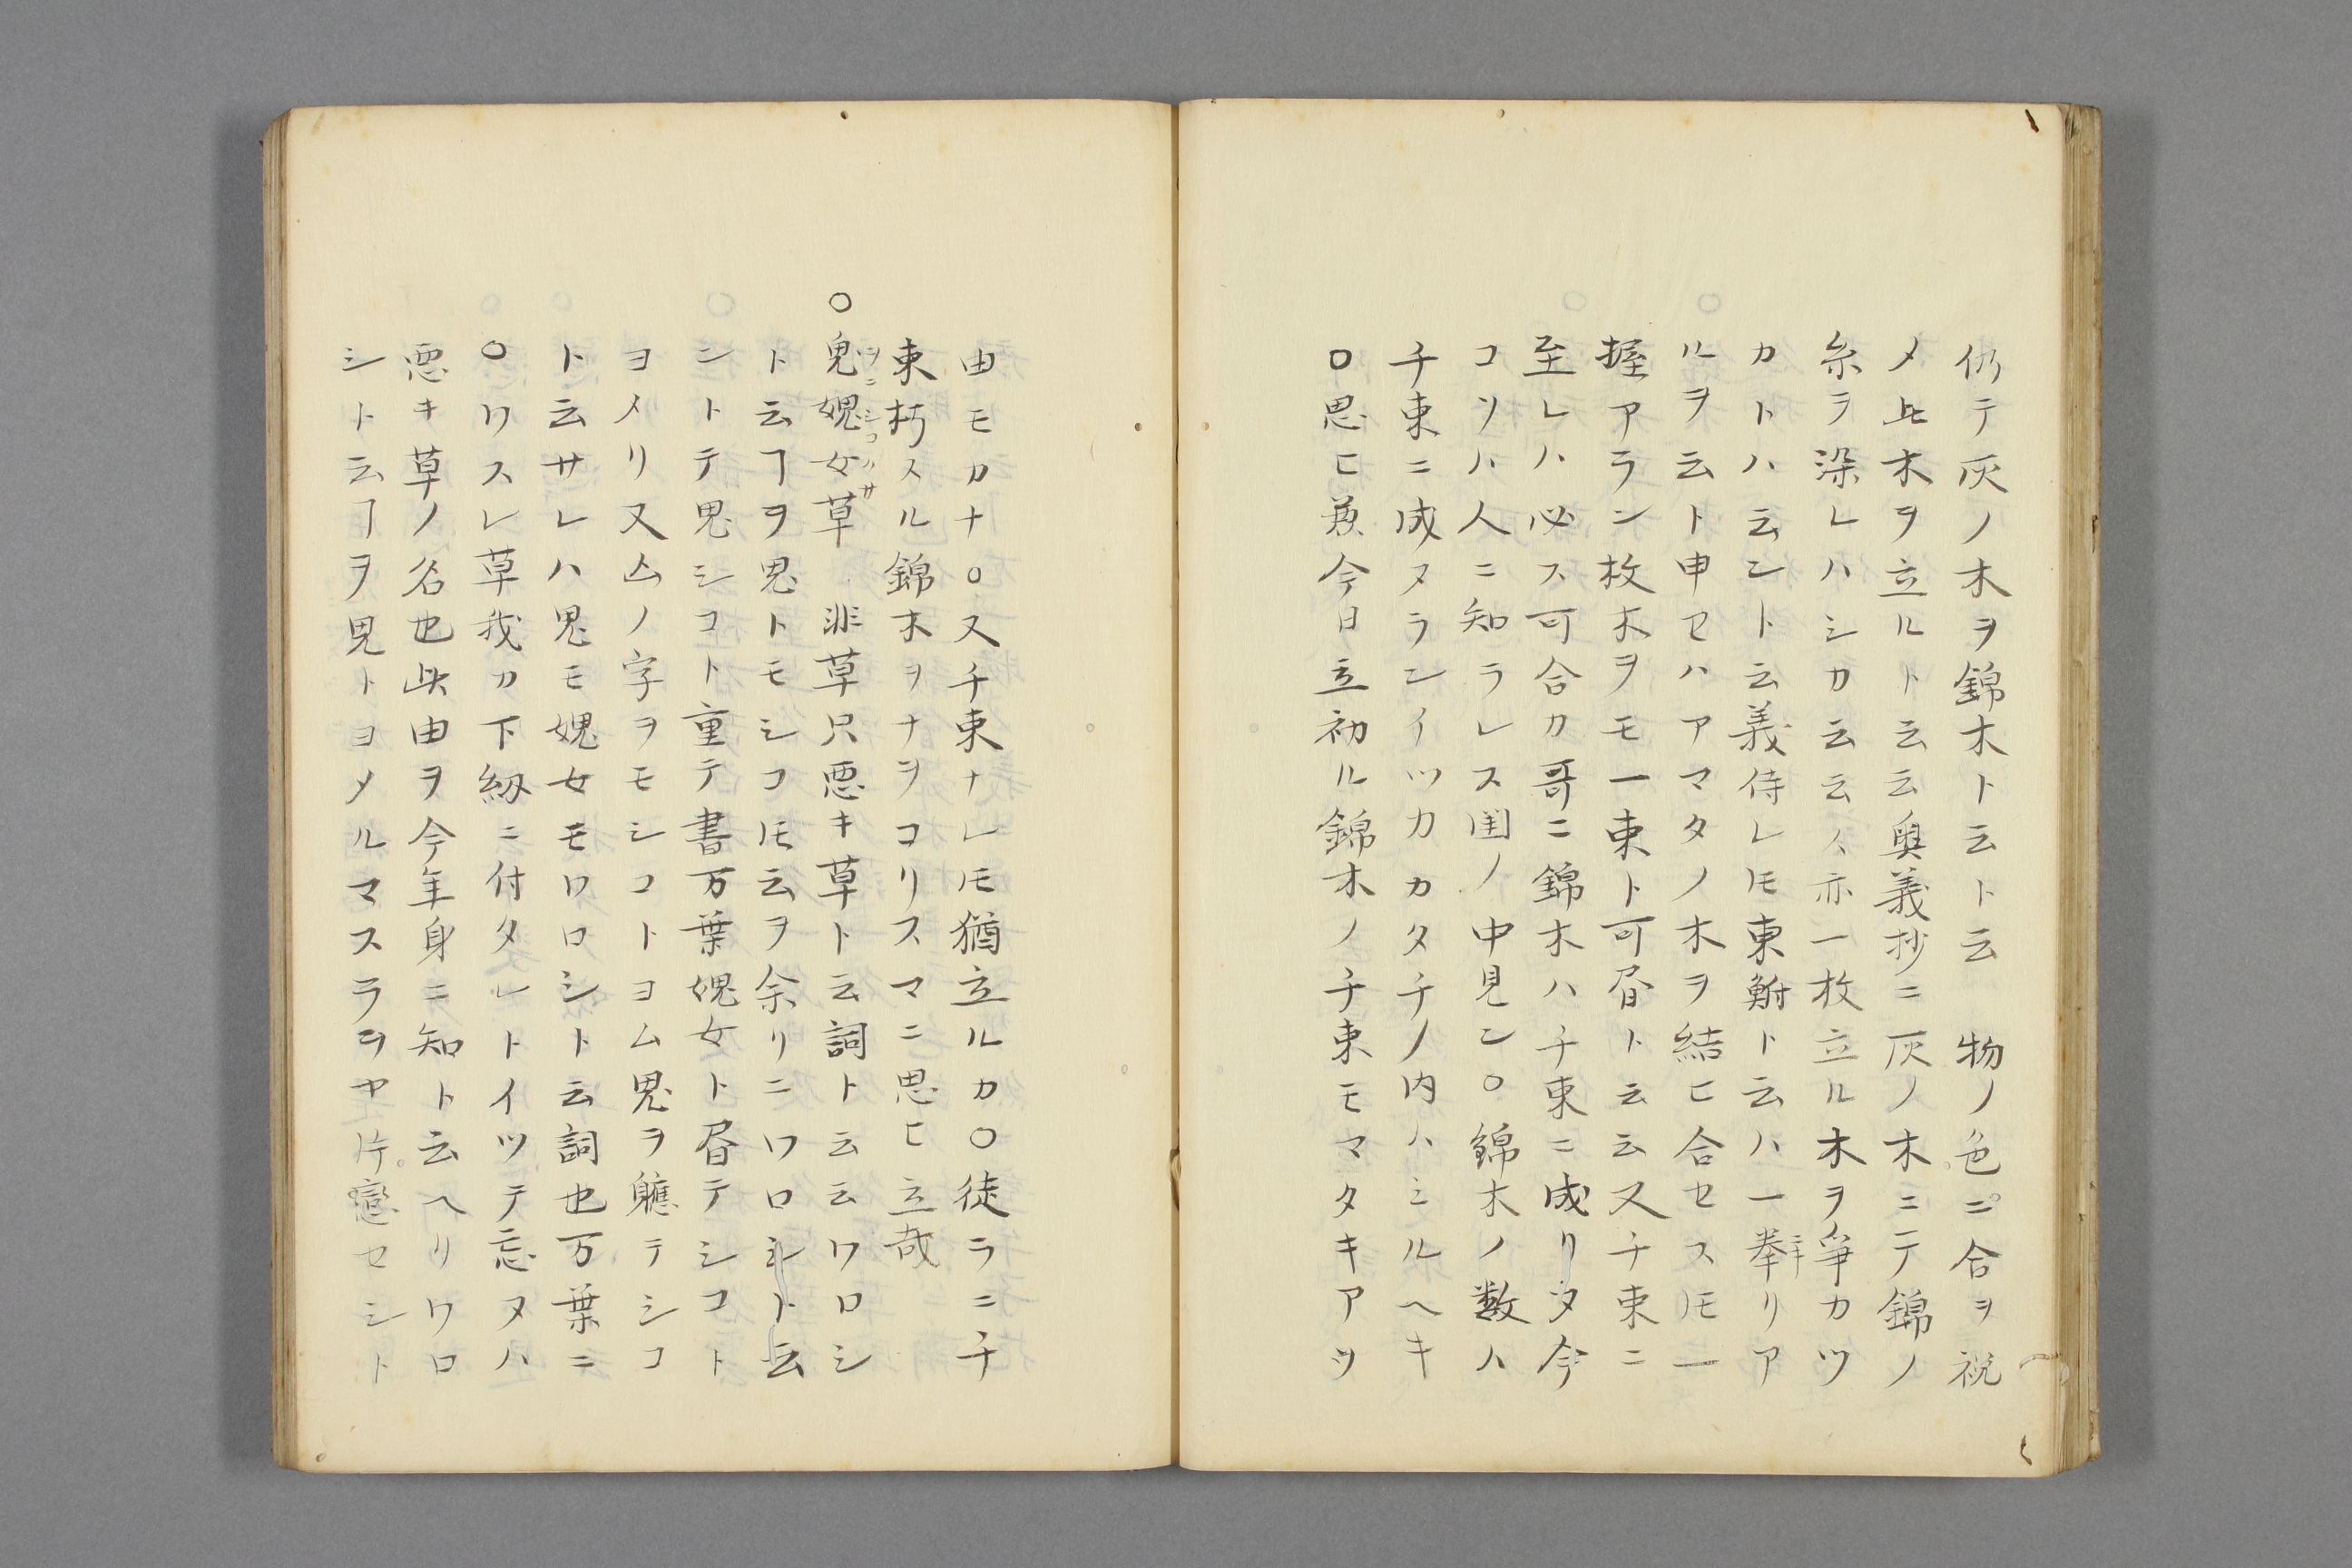 仍テ灰ノ木ヲ錦木ト云ト云　物ノ色ニ合ヲ祝
メ此木ヲ立ルト云云奥義抄ニ灰ノ木ニテ錦ノ
糸ヲ染レハシカ云云ハ亦一枚立ル木ヲ争カツ
カトハ云ント云義侍レ𪜈東鮒ト云ハ一拳リア
ルヲ云ト申セハアマタノ木ヲ結ヒ合セス𪜈一
握アラン枚木ヲモ一束ト可昏ト云云又千束ニ
至レハ必ス可合カ哥ニ錦木ハ千束ニ成リヌ今
コソハ人ニ知ラレス閨ノ中見ン○錦木ノ数ハ
千束ニ成ヌランイツカカタチノ内ハミルヘキ
○思ヒ兼今日立初ル錦木ノ千束モマタキアツ
由モカナ○又千束ナレ𪜈猶立ルカ○徒ラニ千
束朽スル錦木ヲナヲコリスマニ思ヒ立哉
○鬼媿女草　非草只悪キ草ト云詞ト云云ワロシ
ヲニシコクサ
ト云ヿヲ鬼トモシコ𪜈云ヲ余リニワロシト云
ントテ鬼シコト重テ書万葉媿女ト昏テシコト
ヨメリ又亾ノ字ヲモシコトヨム鬼ヲ軈テシコ
ト云サレハ鬼モ媿女モワロシト云詞也万葉ニ
○ワスレ草我カ下紉ニ付タレトイツテ忘ヌハ
悪キ草ノ名也此由ヲ今年身ニ知ト云ヘリワロ
シト云ヿヲ鬼トヨメルマスラヲヤ片戀セシト